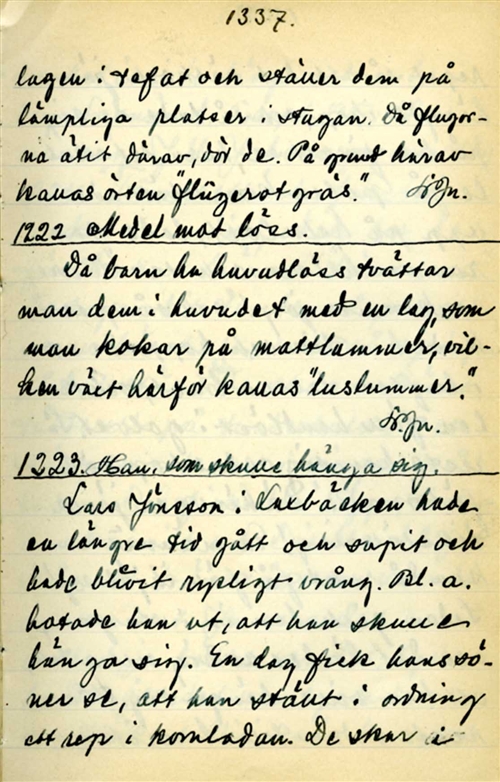 1337.
lagen i tefat och ställer dem på
lämpliga platser i stugan. Då flugor-
na ätit därav, dör de. På grund härav
kallas örten "flugerotgräs." Fr. Jn.
1222 Medel mot löss.
Då barn ha huvudlöss tvättar
man dem i huvudet med en lag, som
man kokar på mattlummer, vil-
ken växt härför kallas "luslummer."
Fr. Jn.
1223. Han, som skulle hänga sig.
Lars Jönsson i Laxbäcken hade
en längre tid gått och supit och
hade blivit rysligt vrång. Bl. a.
hotade han ut, att han skulle
hänga sig. En dag fick hans sö-
ner se, att han ställt i ordning
ett rep i kornladan. De skar